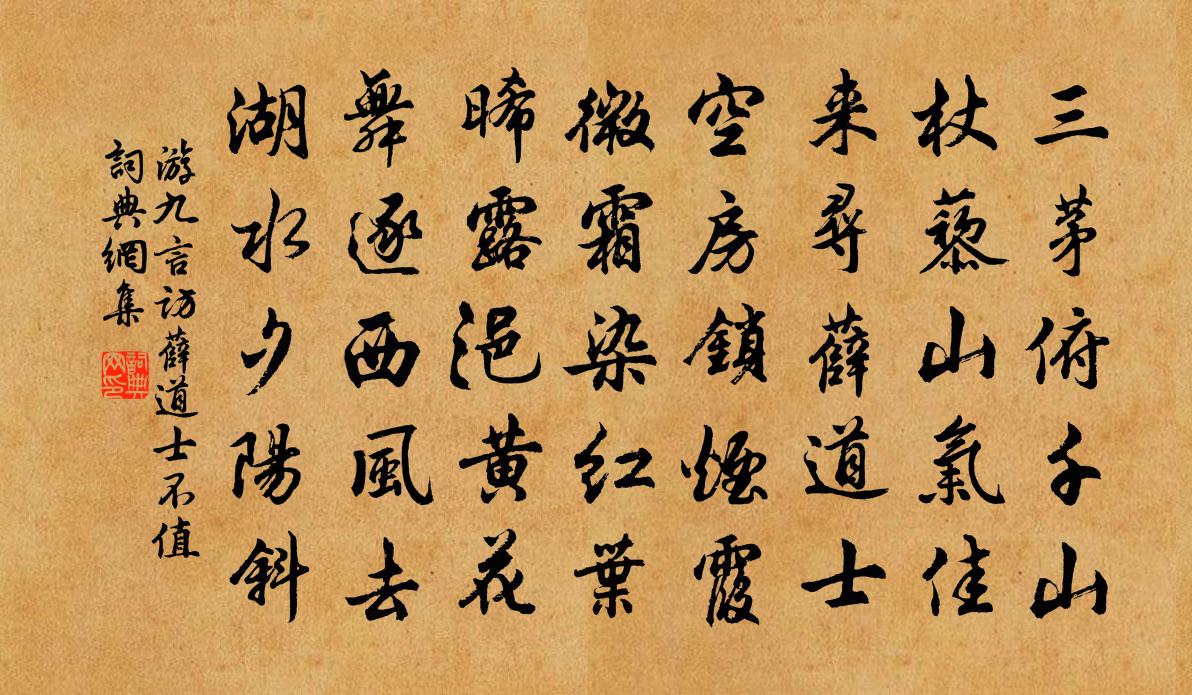 三茅俯千山
杖藜山氣佳
来尋薛道士
空房鎖煙霞
微霜染红葉
晞露浥黄花
舞逐西風去
湖水夕陽斜
游九言访薛道士不值
詞典網集
詞典网印